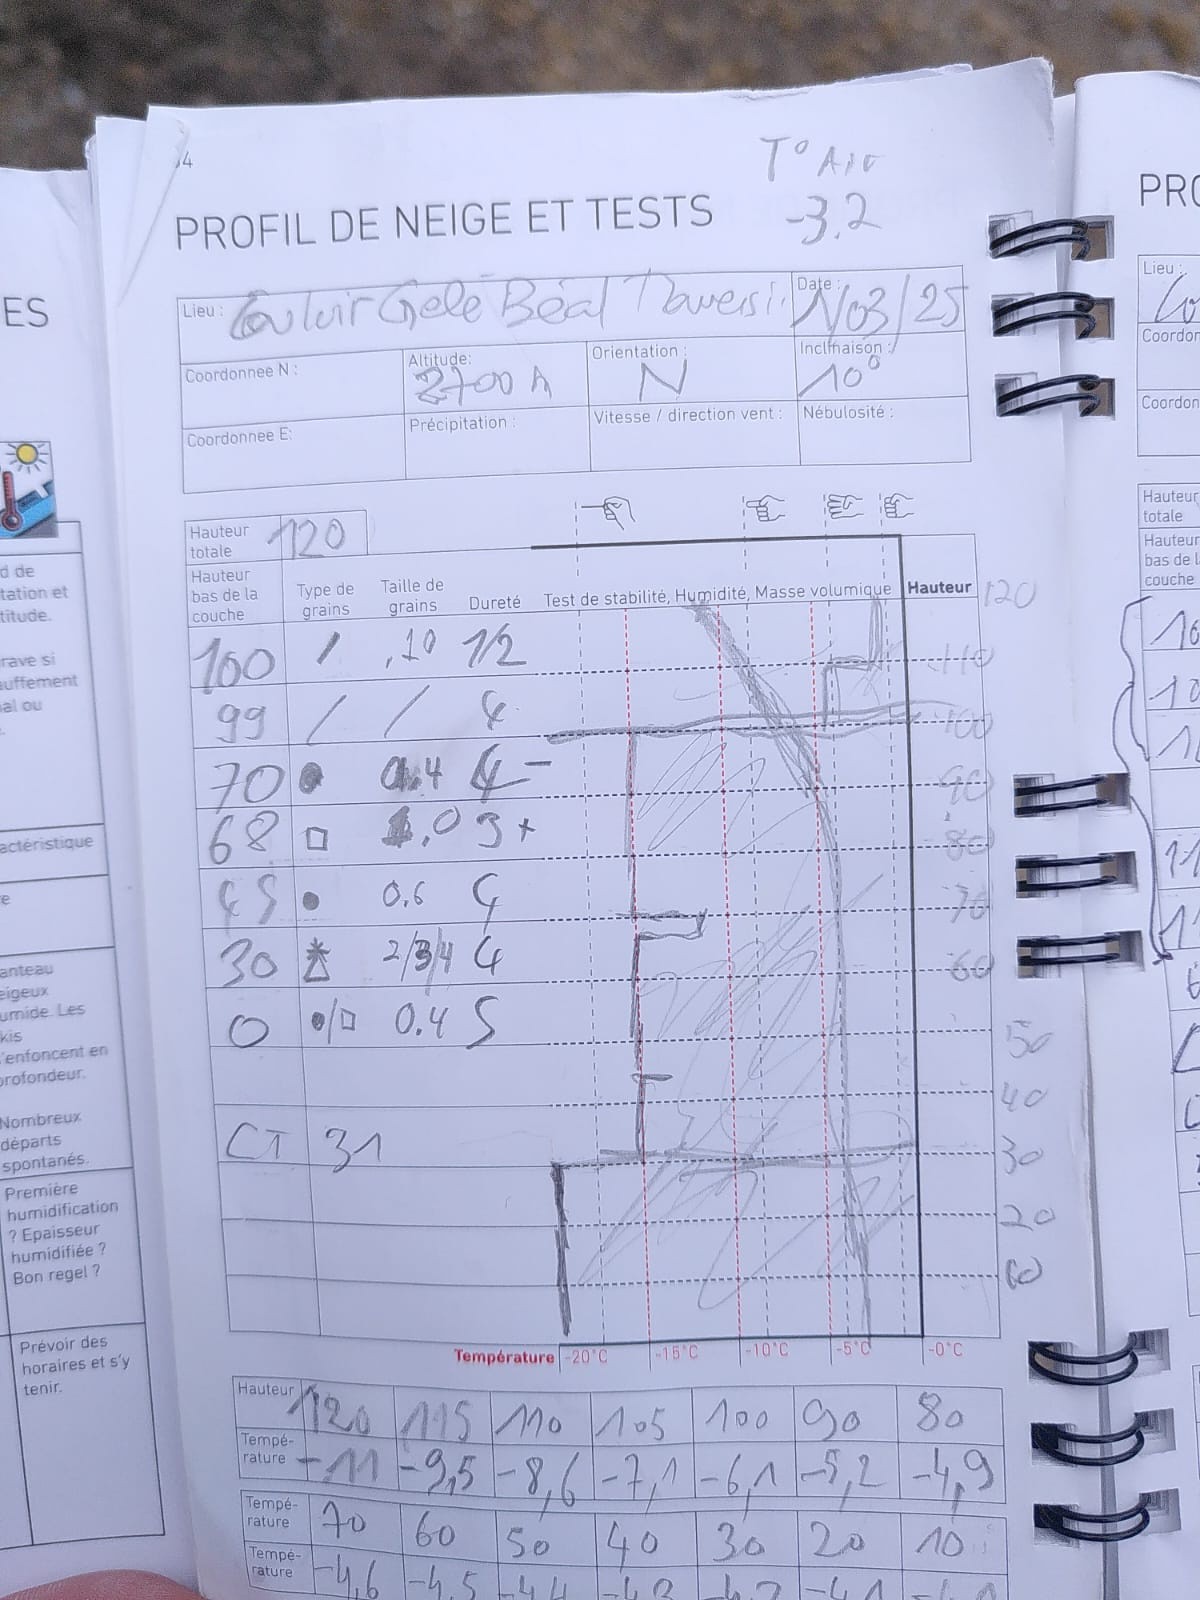 T° Air
-3.2
PROFIL DE NEIGE ET TESTS
Lieu : Couloir Gelé Béal Traversi.
Date : 1/03/25
Coordonnee N :
Altitude: 2700
Orientation : N
Inclinaison : 10°
Coordonnee E:
Précipitation :
Vitesse / direction vent :
Nébulosité :
Hauteur totale 120
Hauteur bas de la couche
Type de grains
Taille de grains
Dureté
Test de stabilité, Humidité, Masse volumique
Hauteur
120
100 / 1/2
110
99 / / 4
100
70 ● 4-
90
68 □ 3+
80
45 ● 0,6 4
70
30 2/3/4 4
60
0 ●/□ 0.4 5
50
40
CT 31
30
20
10
Température -20°C -15°C -10°C -5°C -0°C
Hauteur 120 115 110 105 100 90 80
Tempé-
rature -11 -9,5 -8,6 -7,1 -6,1 -5,2 -4,9
Tempé-
rature 70 60 50 40 30 20 10
Tempé-
rature -4,6 -4,5 -4,4 -4,3 -4,2 -4,1
ES
d de
itude.
rave si
auffement
al ou
actéristique
anteau
eigeux
umide. Les
kis
'enfoncent en
profondeur.
Nombreux
départs
spontanés.
Première
humidification
? Epaisseur
humidifiée ?
Bon regel ?
Prévoir des
horaires et s'y
tenir.
PRO
Lieu :
Coordon
Coordon
Hauteur
totale
Hauteur
bas de l
couche